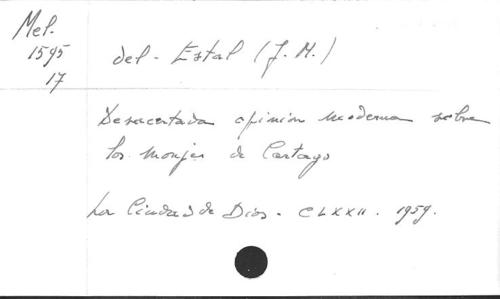 Mel.
1595
17
del. Estal (J. M.)
Desacertada opinión moderna sobre
los monjes de Cartago
La Ciudad de Dios. CLXXII. 1959.